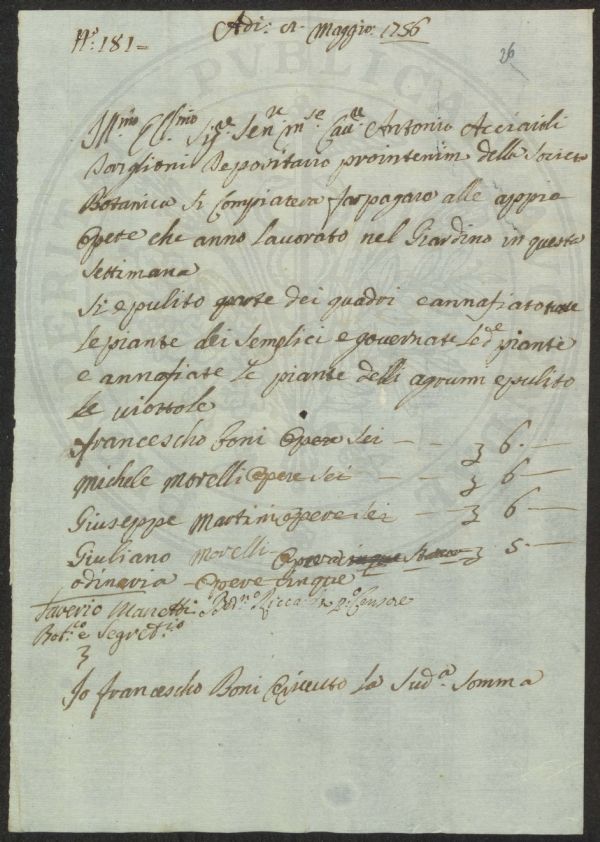 N.° 181 =
Adi: Maggio: 1756
26
Ill.mo Cl.mo Sig.e Sen.re M.se Cau.re Antonio Acciaioli
Depositario prointerim della Societa
Botanica si Compiacera far pagare alle appie
Opere che anno lauorato nel Giardino in questa
Settimana
Si e pulito parte dei quadri e annafiato
le piante dei Semplici e gouernate le d.e piante
e annafiate le piante delli agrumi e pulito
le uiottole
francescho boni Opere Sei — — 3 6 . —
Michele Morelli Opere Sei — — 3 6 —
Giuseppe Martini opere Sei — 3 6 —
Giuliano Morelli — Opere cinque 3 5 . —
odinaria — Opere Cinque
Sauerio Manetti Bern.o Riccardi P.o Censore
Bot.co e Segret.rio
3
Io francescho Boni riceuto la Sud.a Somma
PUBLICA